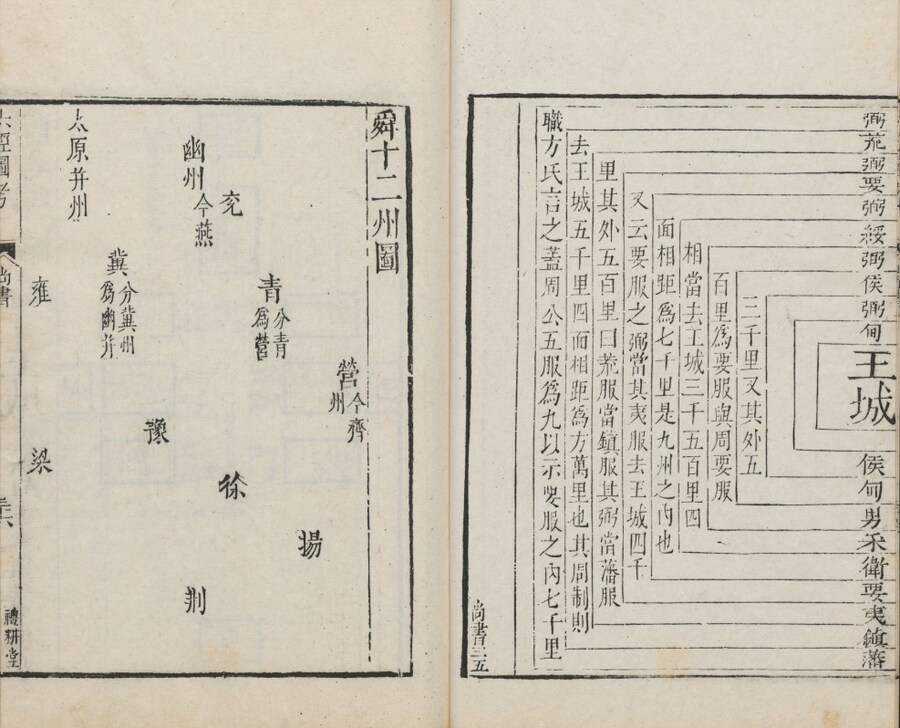 弼荒弼要弼綏弼侯弼甸
王城
侯甸男采衛要夷鎮藩
二千里又其外五
百里爲要服與周要服
相當去王城三千五百里四
面相距爲七千里是九州之内也
又云要服之弼當其夷服去王城四千
里其外五百里曰荒服當鎮服其弼當藩服
去王城五千里四面相距為方萬里也其周制則
職方氏言之蓋周公五服爲九以示要服之内七千里
尚書三五
舜十二州圖
營今齊
州
揚
青分青
爲營
兗
徐
幽州今燕
荆
豫
冀分冀州
爲幽并
太原并州
雍
梁
六經圖考
尚書
三六
禮耕堂